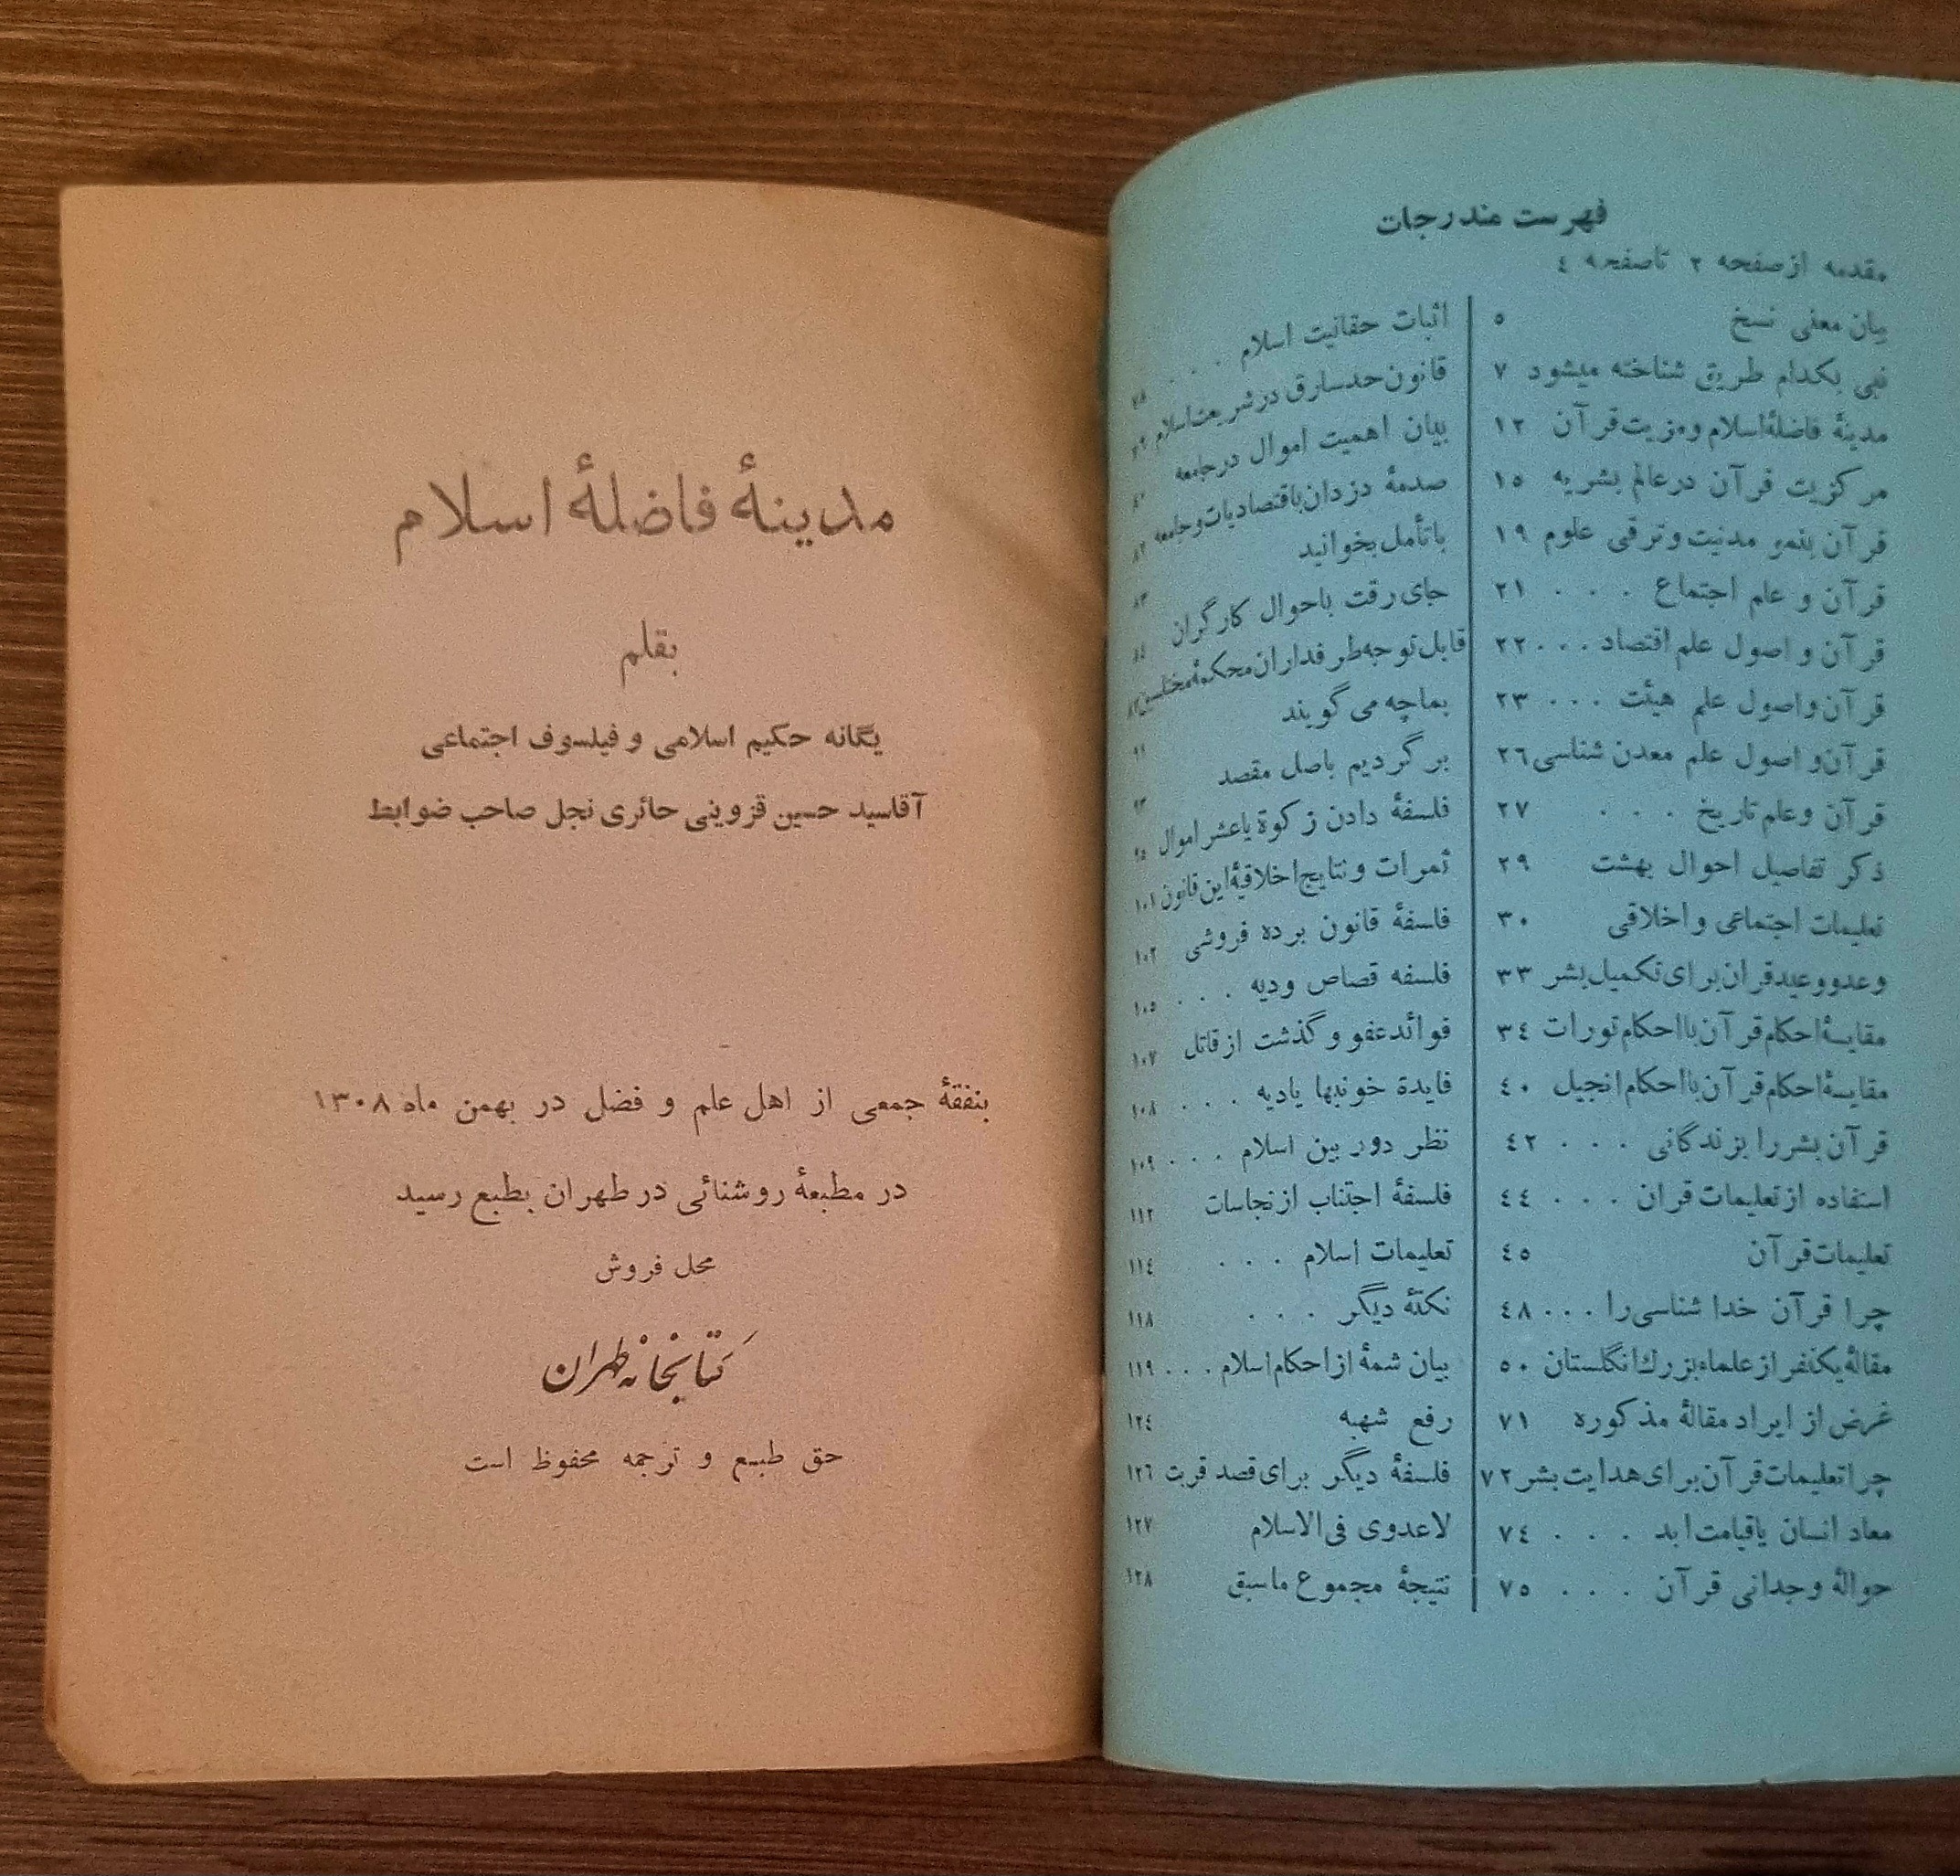 فهرست مندرجات
مقدمه از صفحه ۲ تا صفحه ٤
بیان معنی نسخ ٥
نبی بکدام طریق شناخته میشود ۷
مدینهٔ فاضلهٔ اسلام و مزیت قرآن ۱۲
مرکزیت قرآن در عالم بشریه ۱٥
قرآن بنمو مدنیت و ترقی علوم ۱۹
قرآن و علم اجتماع . . . ۲۱
قرآن و اصول علم اقتصاد . . . ۲۲
قرآن و اصول علم هیئت . . . ۲۳
قرآن و اصول علم معدن شناسی ۲٦
قرآن و علم تاریخ . . . ۲۷
ذکر تفاصیل احوال بهشت ۲۹
تعلیمات اجتماعی و اخلاقی ۳۰
وعد و وعید قران برای تکمیل بشر ۳۳
مقایسهٔ احکام قرآن با احکام تورات ۳٤
مقایسهٔ احکام قرآن با احکام انجیل ٤۰
قرآن بشر را بزندگانی . . . ٤۲
استفاده از تعلیمات قران . . . ٤٤
تعلیمات قرآن ٤٥
چرا قرآن خدا شناسی را . . . ٤۸
مقالهٔ یکنفر از علماء بزرك انگلستان ٥۰
غرض از ایراد مقالهٔ مذکوره ۷۱
چرا تعلیمات قرآن برای هدایت بشر ۷۲
معاد انسان یا قیامت ابد . . . ۷٤
حوالهٔ وجدانی قرآن . . . ۷٥
اثبات حقانیت اسلام . . . ۷۸
قانون حد سارق در شریعت اسلام
بیان اهمیت اموال در جامعه
صدمهٔ دزدان باقتصادیات و جامعه ۸۲
با تأمل بخوانید ۸۳
جای رقت باحوال کارگران ۸٤
قابل توجه طرفداران محکمهٔ مختلس
بما چه می گویند ۹۱
بر گردیم باصل مقصد ۹۳
فلسفهٔ دادن زکوة یا عشر اموال ۹٥
ثمرات و نتایج اخلاقیهٔ این قانون ۱۰۱
فلسفهٔ قانون برده فروشی ۱۰۲
فلسفه قصاص و دیه . . . ۱۰٥
فوائد عفو و گذشت از قاتل ۱۰۷
فایدهٔ خونبها یا دیه . . . ۱۰۸
نظر دور بین اسلام . . . ۱۰۹
فلسفهٔ اجتناب از نجاسات ۱۱۲
تعلیمات اسلام . . . ۱۱٤
نکتهٔ دیگر . . . ۱۱۸
بیان شمهٔ از احکام اسلام . . . ۱۱۹
رفع شبهه ۱۲٤
فلسفهٔ دیگر برای قصد قربت ۱۲٦
لاعدوی فی الاسلام ۱۲۷
نتیجهٔ مجموع ماسبق ۱۲۸
مدینهٔ فاضلهٔ اسلام
بقلم
یگانه حکیم اسلامی و فیلسوف اجتماعی
آقاسید حسین قزوینی حائری نجل صاحب ضوابط
بنفقهٔ جمعی از اهل علم و فضل در بهمن ماه ۱۳۰۸
در مطبعهٔ روشنائی در طهران بطبع رسید
محل فروش
کتابخانه طهران
حق طبع و ترجمه محفوظ است